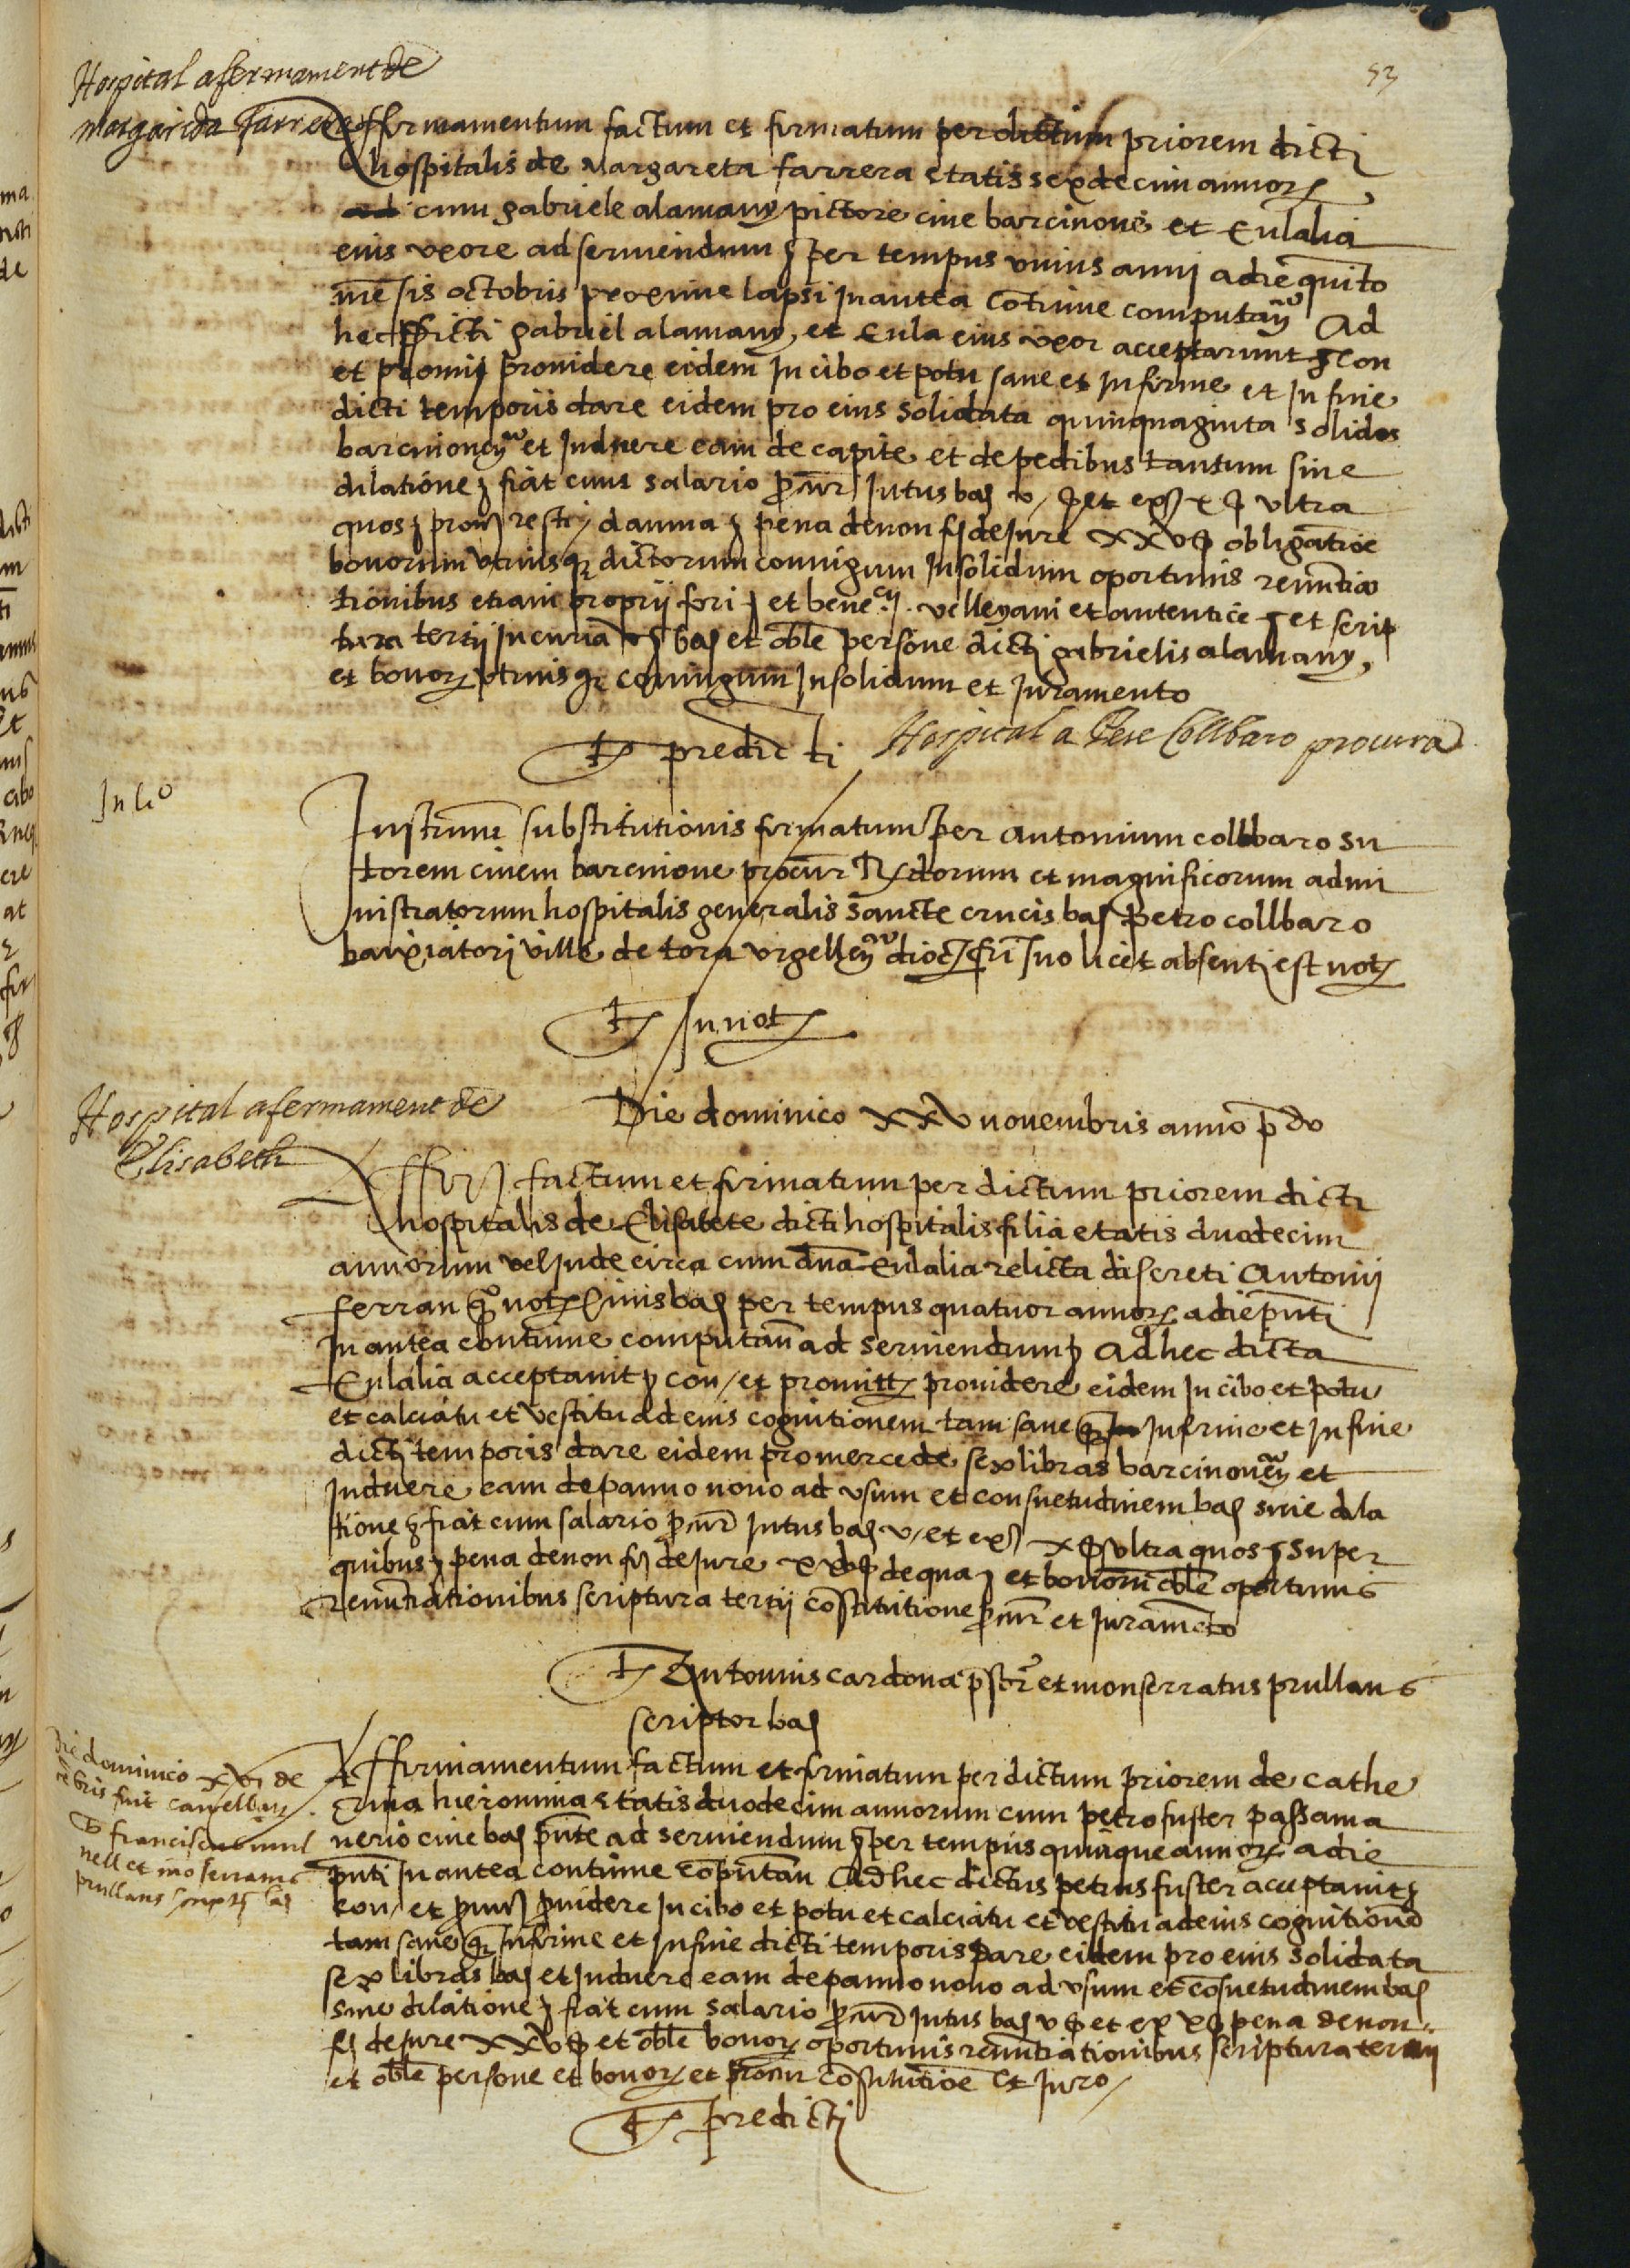 53
Hospital afermament de
margarida farrera
Affermamentum factum et firmatum per dictum priorem dicti
hospitalis de Margareta farrera etatis sexdecim annorꝝ
cum gabriele alamany pictore cive barcinone et Eulalia
eius uxore ad serviendum per tempus unius anni a die quinto
mēsis octobris proxime lapsi in antea cōtinue computāꝝ Ad
hec dicti gabriel alamany, et Eula eius uxor acceptarunt con
et promis providere eidem In cibo et potu sane et Infirme et In fine
dicti temporis dare eidem pro eius solidata quinquaginta solidos
barcinoneꝝ et Induere eam de capite et de pedibus tantum sine
dilatione fiat cum salario procur intus baꝝ v s et ex x s ultra
quos promꝝ resti damna pena de non fi de Jure xxv s obligatioe
bonorum utriusqꝫ dictorum coniugum Insolidum oportunis renuntia
tionibus etiam proprii fori et beneⁱⁱ velleyani et autentice et scrip
tura tertii In curia baꝝ et oble persone dicti gabrielis alamany,
et bonorꝝ utriusqꝫ coniugum Insolidum et Juramento
Tˢ predicti
Hospital a Pere Collbaro procura
In liº
Instrumē substitutionis firmatum per Antonium collbaro su
torem civem barcinone procur Rꝝdorum et magnificorum admi
nistratorum hospitalis generalis sancte crucis baꝝ Petro collbaro
ville de tora urgelleꝝ dioc fri suo licet absenti est notꝝ
Tˢ In notꝝ
Hospital afermament de
Elisabeth
Die dominico xxv novembris anno p̄do
Affirꝝ factum et firmatum per dictum priorem dicti
hospitalis de Elisabete dicti hospitalis filia etatis duodecim
annorum vel Inde circa cum dn̄a Eulalia relicta discreti Antonii
ferran qº notꝝ civis baꝝ per tempus quatuor annorꝝ a die pn̄ti
In antea continue computan̄ ad serviendum Ad hec dicta
Eulalia acceptavit con / et promittꝝ providere eidem In cibo et potu
et calciatu et vestitu ad eius cognitionem tam sane qꝫ Infirme et In fine
dicti temporis dare eidem pro mercede sex libras barcinoneꝝ et
Induere eam de panno novo ad usum et consuetudinem baꝝ sine dila
tione fiat cum salario procur Intus baꝝ v / et ex x s ultra quos super
quibus pena de non fi de Jure xxv s de qua et bonorū oble oportunis
renuntiationibus scriptura tertii cōstitutione procur et Juramēto
Tˢ Antonius cardona et monserratus prullans
scriptor baꝝ
Die dominico xvi de
cēbris fuit cancellatꝝ
Tˢ franciscus
nell et mōserratꝰ
prullans
Affirmamentum factum et firmatum per dictum priorem de Cathe
rina hieronima etatis duodecim annorum cum petro fuster passama
nerio cive baꝝ pn̄te ad serviendum per tempus quinque annorꝝ a die
pn̄ti In antea continue cōputan̄ Ad hec dictus petrus fuster acceptavit
con / et promꝝ p̄videre In cibo et potu et calciatu et vestitu ad eius cognitionē
tam sane qꝫ Infirme et In fine dicti temporis dare eidem pro eius solidata
sex libras baꝝ et Induere eam de panno novo ad usum et cōsuetudinem baꝝ
sine dilatione fiat cum salario procur Intus baꝝ v s et ex x s pena de non
fi de Jure xxv s et oble bonorꝝ oportunis renuntiationibus scriptura tertii
et oble persone et bonorꝝ et procur cōstitutioe et Juro /
Tˢ predicti